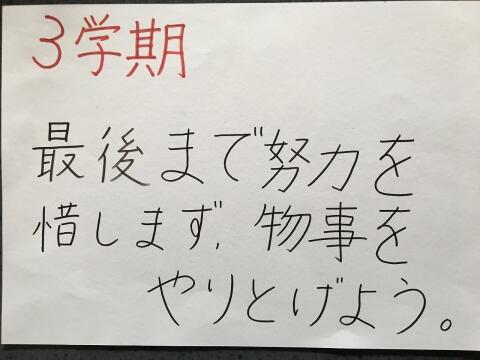 3学期
最後まで努力を
惜しまず,物事を
やりとげよう。